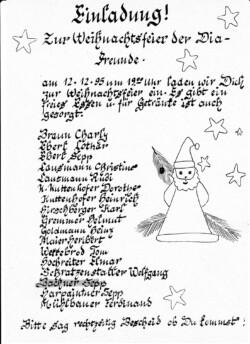 Einladung!
Zur Weihnachtsfeier der Dia-
Freunde.
am 12.12.95 um 19 Uhr laden wir Dich
zur Weihnachtsfeier ein. Es gibt ein
freies Essen u. für Getränke ist auch
gesorgt.
Braun Charly
Eberl Lothar
Eberl Sepp
Lausmann Christine
Lausmann Rudi
Kuttenhofer Dorothee
Kuttenhofer Heinrich
Hirschberger Karl
Gremmer Helmut
Goldmann Heinz
Maier Heribert
Tom
Hochreiter Elmar
Schratzenstaller Wolfgang
Sepp
Sepp
Mühlbauer Ferdinand
Bitte sag rechtzeitig Bescheid ob Du kommst!